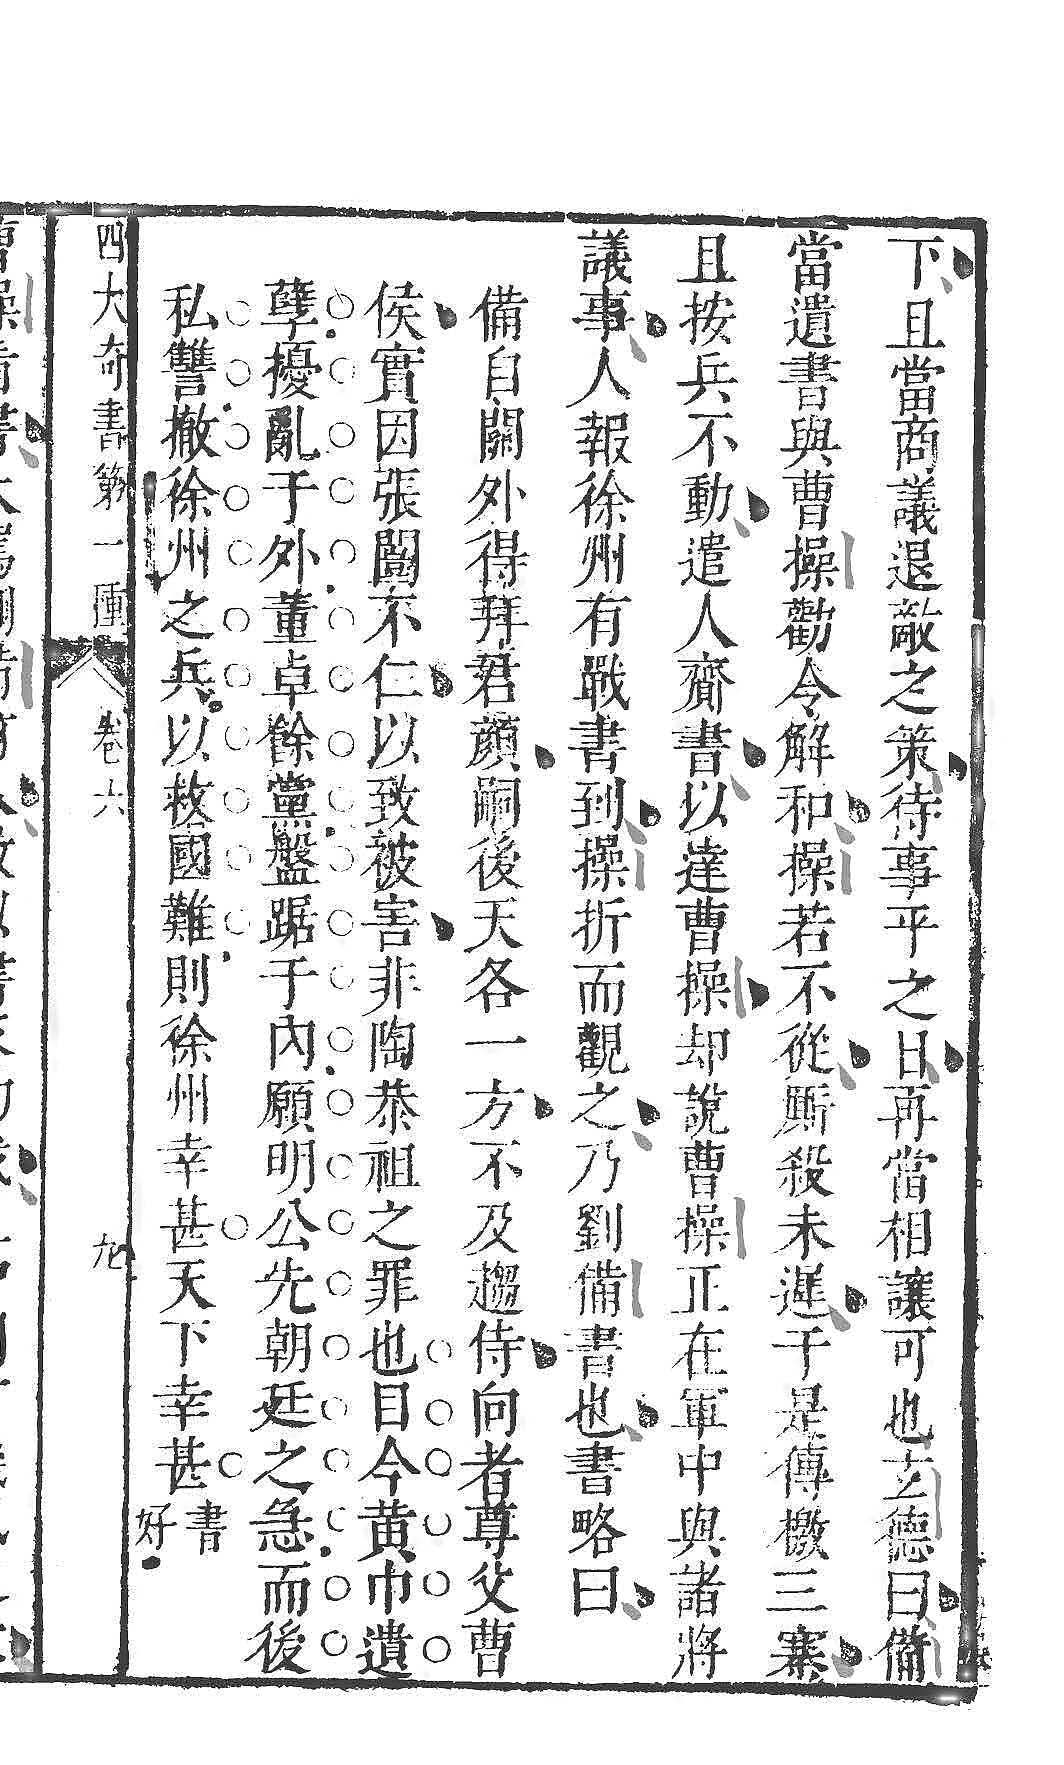 下且當商議退敵之策待事平之日再當相讓可也玄德曰備
當遺書與曹操勸令解和操若不從厮殺未遲于是傳檄三寨
且按兵不動遣人齎書以達曹操却說曹操正在軍中與諸將
議事人報徐州有戰書到操折而觀之乃劉備書也書略曰
備自關外得拜君顏嗣後天各一方不及趨侍向者尊父曹
侯實因張闓不仁以致被害非陶恭祖之罪也目今黄巾遺
孽擾亂于外董卓餘黨盤踞于內願明公先朝廷之急而後
私讐撤徐州之兵以救國難則徐州幸甚天下幸甚
書
好
四大奇書第一種
卷六
九